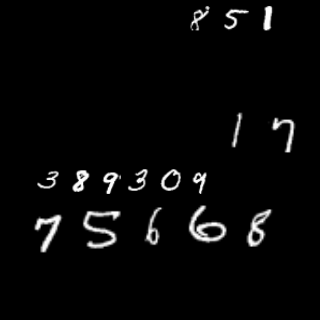 851
17
389309
75668